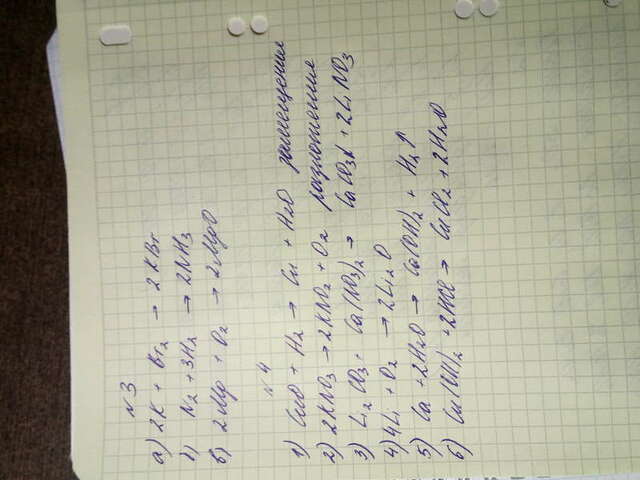 №3
а) 2K + Br₂ → 2KBr
б) N₂ + 3H₂ → 2NH₃
в) 2Mg + O₂ → 2MgO
№4
1) CuO + H₂ → Cu + H₂O замещения
2) 2KNO₃ → 2KNO₂ + O₂ разложения
3) Li₂CO₃ + Ca(NO₃)₂ → CaCO₃↓ + 2LiNO₃
4) 4Li + O₂ → 2Li₂O
5) Ca + 2H₂O → Ca(OH)₂ + H₂↑
6) Cu(OH)₂ + 2HCl → CuCl₂ + 2H₂O